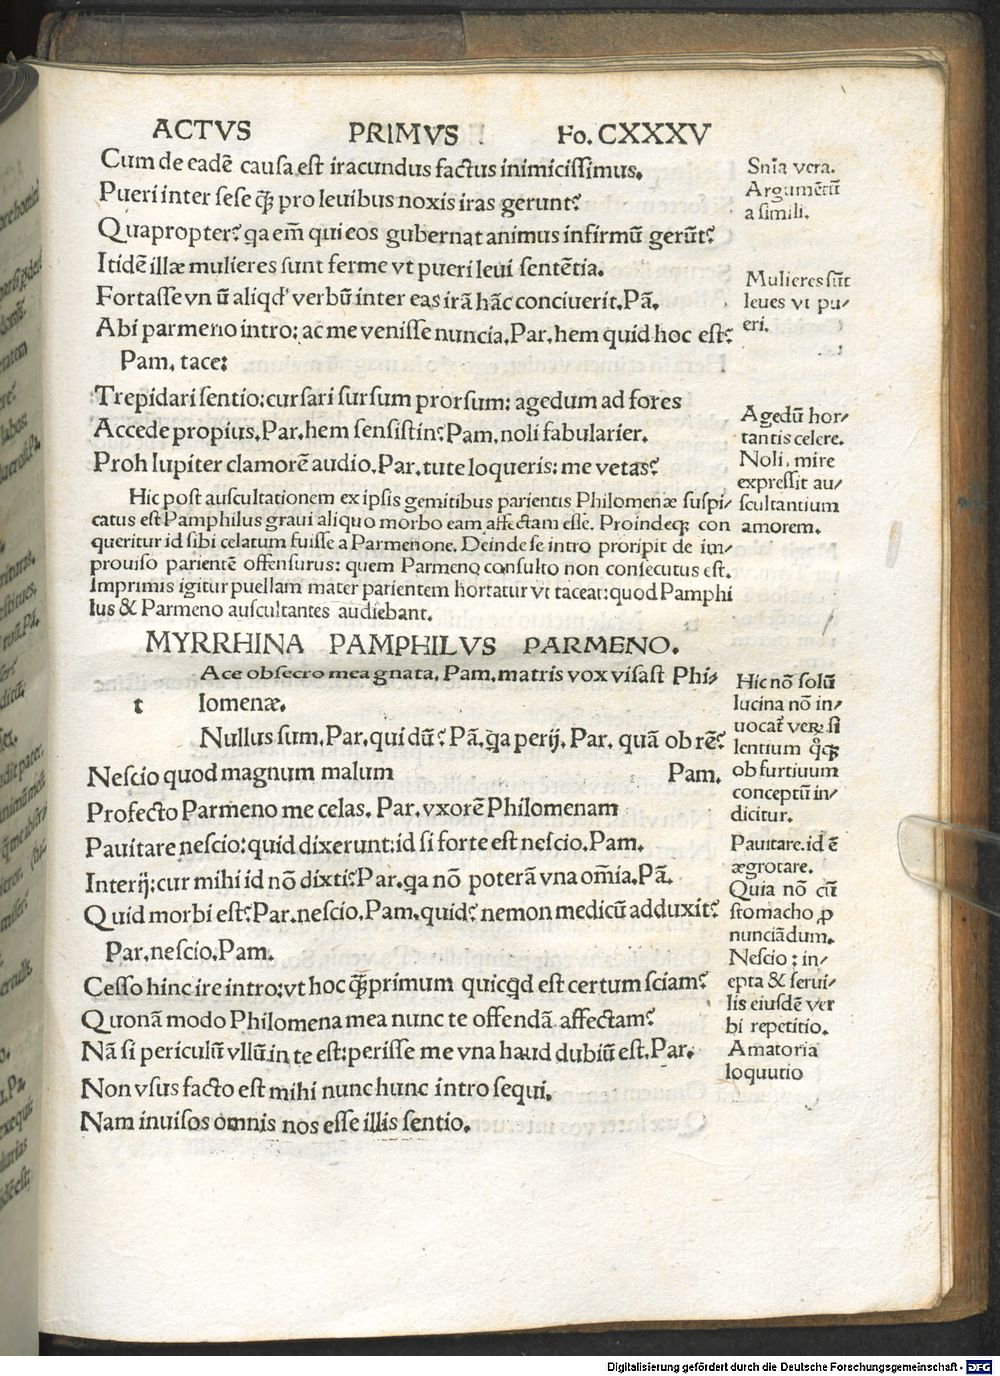 ACTVS PRIMVS Fo. CXXXV
Cum de eadē causa est iracundus factus inimicissimus.
Pueri inter sese q̄ꝫ pro leuibus noxis iras gerunt?
Quapropter? qa em̄ qui eos gubernat animus infirmū gerūt?
Itidē illæ mulieres sunt ferme vt pueri leui sentētia.
Fortasse vn ū aliqd verbū inter eas irā hāc conciuerit. Pā.
Abi parmeno intro: ac me venisse nuncia. Par. hem quid hoc est?
Pam. tace:
Trepidari sentio: cursari sursum prorsum: agedum ad fores
Accede propius. Par. hem sensistin? Pam. noli fabularier.
Proh Iupiter clamorē audio. Par. tute loqueris: me vetas?
Hic post auscultationem ex ipsis gemitibus parientis Philomenæ suspi/
catus est Pamphilus graui aliquo morbo eam affectam esse. Proindeqꝫ con
queritur id sibi celatum fuisse a Parmenone. Deinde se intro proripit de im/
prouiso parientē offensurus: quem Parmeno consulto non consecutus est.
Imprimis igitur puellam mater parientem hortatur vt taceat: quod Pamphi
lus & Parmeno auscultantes audiebant.
MYRRHINA PAMPHILVS PARMENO.
Ace obsecro mea gnata. Pam. matris vox visast Phi/
t lomenæ.
Nullus sum. Par. qui dū? Pā. qa perij. Par. quā ob rē?
Nescio quod magnum malum Pam.
Profecto Parmeno me celas. Par. vxorē Philomenam
Pauitare nescio: quid dixerunt: id si forte est nescio. Pam.
Interij: cur mihi id nō dixti? Par. qa nō poterā vna om̄ia. Pā.
Quid morbi est? Par. nescio. Pam. quid? nemon medicū adduxit?
Par. nescio. Pam.
Cesso hinc ire intro: vt hoc q̄ꝫprimum quicqd est certum sciam?
Quonā modo Philomena mea nunc te offendā affectam?
Nā si periculū vllū in te est: perisse me vna haud dubiū est. Par.
Non vsus facto est mihi nunc hunc intro sequi.
Nam inuisos omnis nos esse illis sentio.
Snīa vera.
Argumētū
a simili.
Mulieres sūt
leues vt pu/
eri.
Agedū hor/
tantis celere.
Noli, mire
expressit au/
scultantium
amorem.
Hic nō solū
lucina nō in/
uocat̄ verꝫ si
lentium q̄qꝫ
ob furtiuum
conceptū in/
dicitur.
Pauitare. id ē
ægrotare.
Quia nō cū
stomacho ꝓ
nunciādum.
Nescio: in/
epta & serui/
lis eiusdē ver
bi repetitio.
Amatoria
loquutio
Digitalisierung gefördert durch die Deutsche Forschungsgemeinschaft - DFG